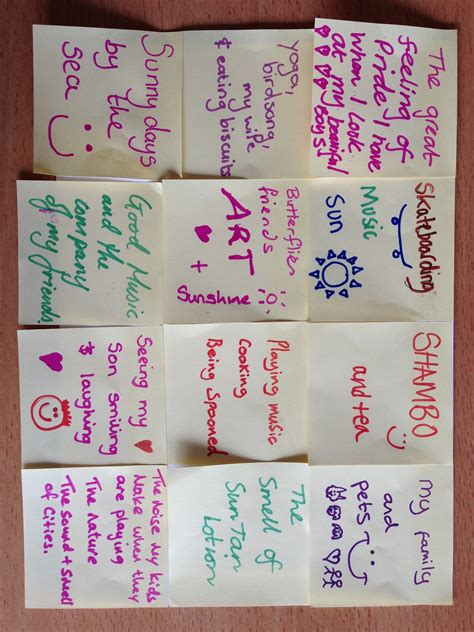 Sunny days
by the
sea
yoga,
birdsong,
my wife
& eating biscuits
The great
feeling of
Pride I have
when I look
at my beautiful
boys
Good Music
and the
company
of my friends
Butterflies
friends
ART
+
Sunshine
Skateboarding
Music
Sun
Seeing my
Son smiling
& laughing
Playing music
Cooking
Being Spooned
SHAMBO
and tea
The Noise My kids
Make when they
are playing
The Nature
The Sound & Smell
of Cities.
The
Smell of
Sun Tan
Lotion
My family
and
pets